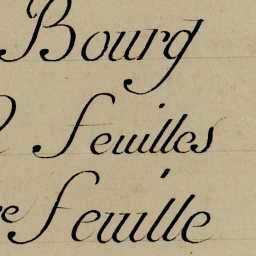 Bourg
feuilles
re feuille